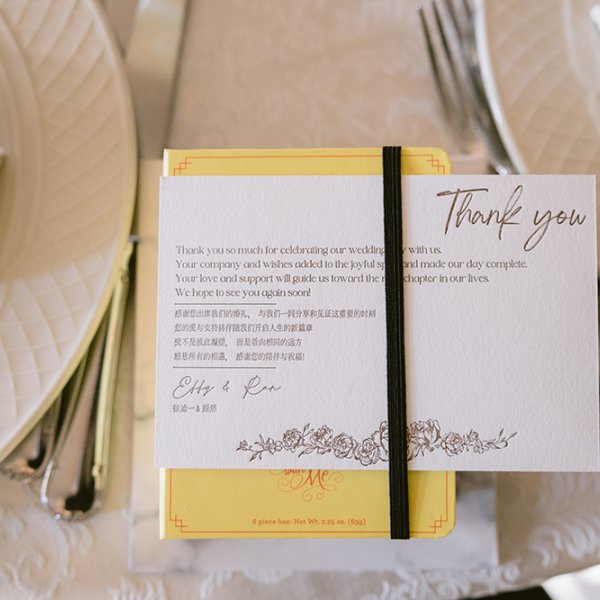 Thank you
Thank you so much for celebrating our wedding y with us.
Your company and wishes added to the joyful sp and made our day complete.
Your love and support will guide us toward the n chapter in our lives.
We hope to see you again soon!
感谢您出席我们的婚礼， 与我们一同分享和见证这重要的时刻
您的爱与支持将伴随我们开启人生的新篇章
爱不是彼此凝望， 而是看向相同的远方
感恩所有的相遇， 感谢您的陪伴与祝福!
Effy & Ran
Me
6 piece box: Net Wt. 2.25 oz. (63g)